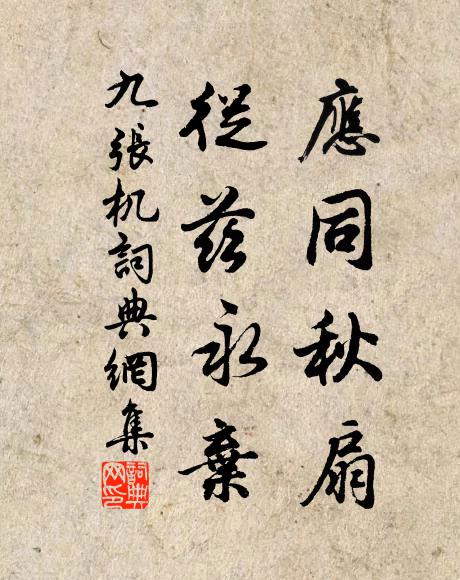 應同秋扇
從兹永棄
九張机詞典網集
詞典
网印